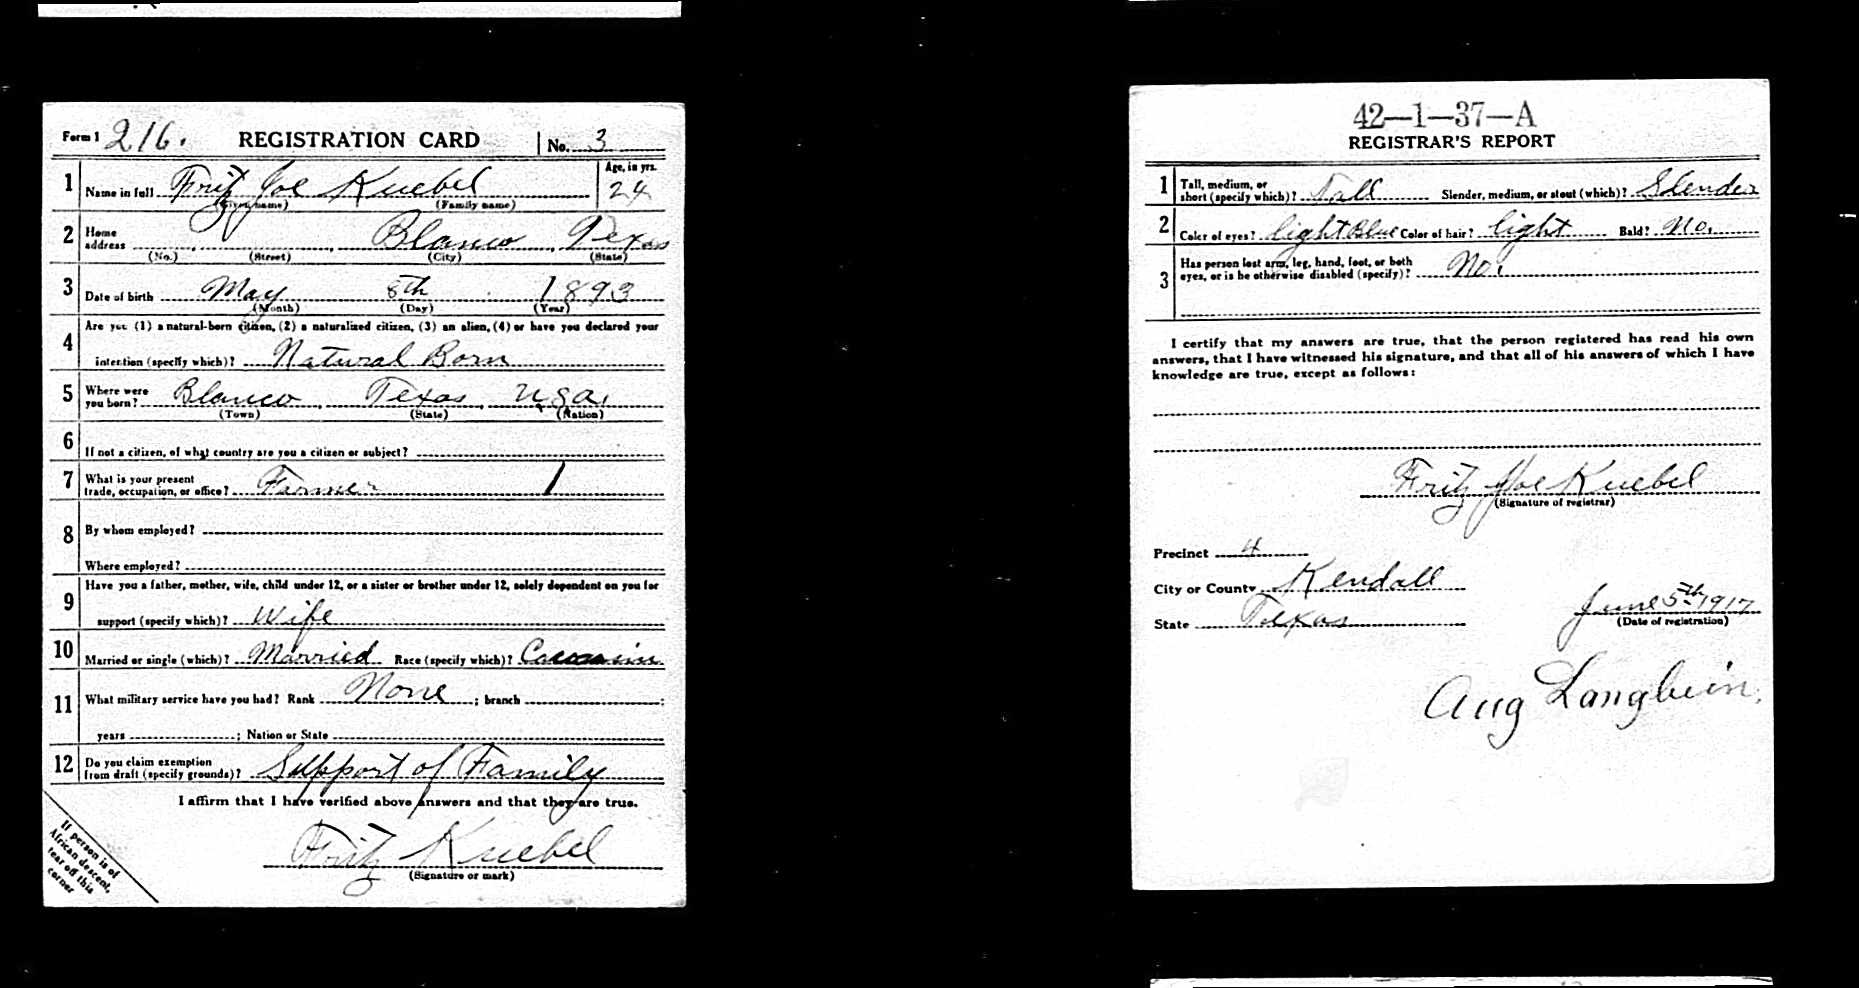 Form 1 216. REGISTRATION CARD No. 3
1 Name in full Fritz Joe Kuebel Age, in yrs. 24
(Given name) (Family name)
2 Home address Blanco Texas
(No.) (Street) (City) (State)
3 Date of birth May 8th 1893
(Month) (Day) (Year)
4 Are you (1) a natural-born citizen, (2) a naturalized citizen, (3) an alien, (4) or have you declared your
intention (specify which)? Natural Born
5 Where were you born? Blanco Texas USA.
(Town) (State) (Nation)
6 If not a citizen, of what country are you a citizen or subject?
7 What is your present trade, occupation, or office? Farmer 1
8 By whom employed?
Where employed?
9 Have you a father, mother, wife, child under 12, or a sister or brother under 12, solely dependent on you for
support (specify which)? Wife
10 Married or single (which)? Married Race (specify which)?
11 What military service have you had? Rank None ; branch ;
years ; Nation or State
12 Do you claim exemption from draft (specify grounds)? Support of Family
I affirm that I have verified above answers and that they are true.
Fritz Kuebel
(Signature or mark)
If person is of
African descent,
tear off this
corner
42—1—37—A
REGISTRAR'S REPORT
1 Tall, medium, or short (specify which)? Tall Slender, medium, or stout (which)? Slender
2 Color of eyes? light Blue Color of hair? light Bald? No.
3 Has person lost arm, leg, hand, foot, or both eyes, or is he otherwise disabled (specify)? No.
I certify that my answers are true, that the person registered has read his own
answers, that I have witnessed his signature, and that all of his answers of which I have
knowledge are true, except as follows:
Fritz Joe Kuebel
(Signature of registrar)
Precinct 4
City or County Kendall
State Texas
June 5th 1917
(Date of registration)
Aug Langbein.